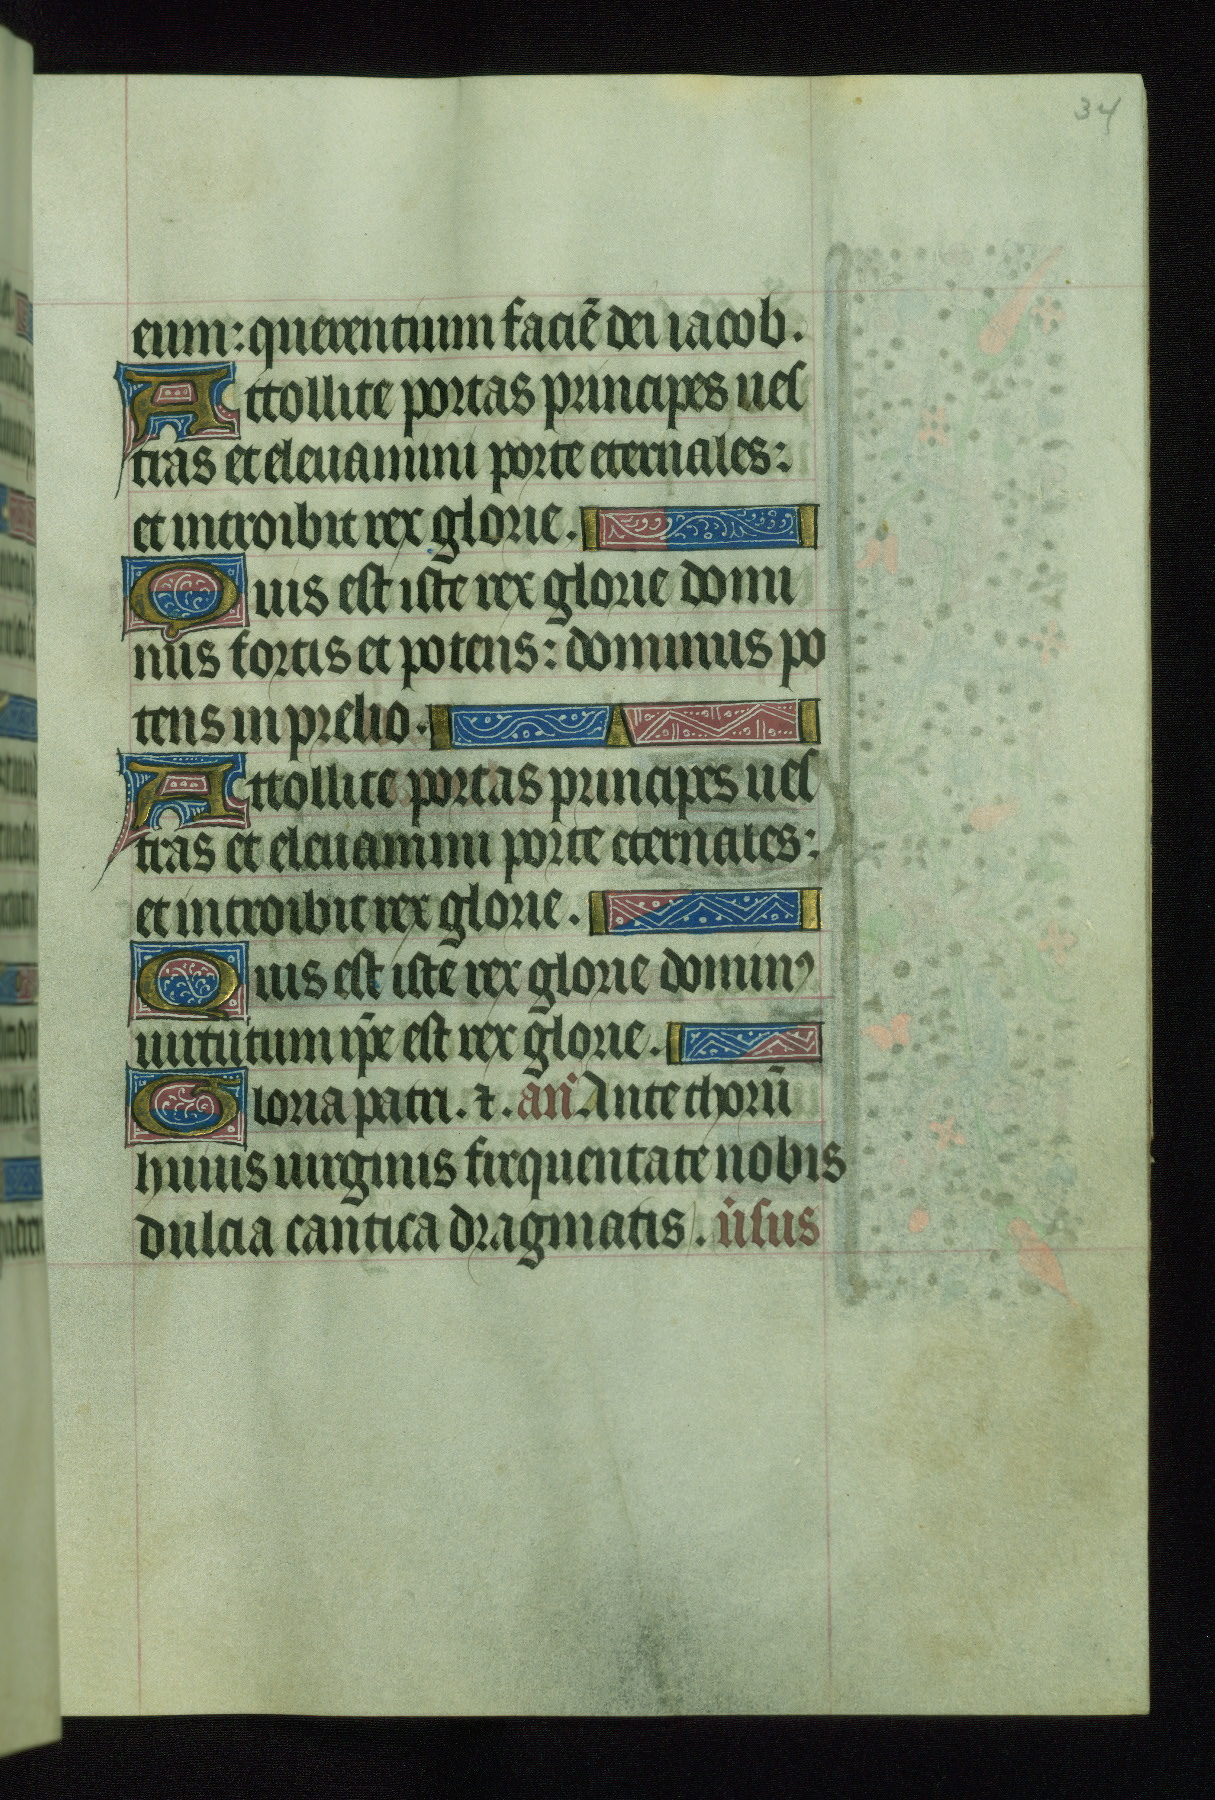 34
eum: querentium faciē dei iacob.
Attollite portas principes ues
tras et eleuamini porte eternales:
et introibit rex glorie.
Quis est iste rex glorie domi
nus fortis et potens: dominus po
tens in prelio.
Attollite portas principes ues
tras et eleuamini porte eternales:
et introibit rex glorie.
Quis est iste rex glorie dominꝰ
uirtutum ip̄e est rex glorie.
Gloria patri. ⁊. an̄. Ante thorū
huius uirginis frequentate nobis
dulcia cantica dragmatis. u̇sus